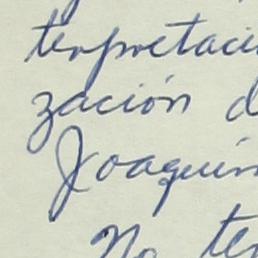 terpretaci
zación d
Joaquin
No te